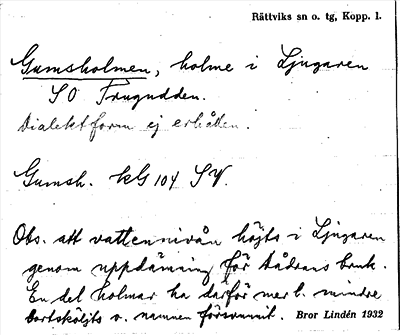 Rättviks sn o. tg, Kopp. l.
Gumsholmen, holme i Ljugaren
SO Trugudden.
Dialektform ej erhållen.
Gumsh. kG 104 SV.
Obs. att vattennivån höjts i Ljugaren
genom uppdämning för Dådrans bruk.
En del holmar ha därför mer l. mindre
bortsköljts o. namnen försvunnit. Bror Lindén 1932